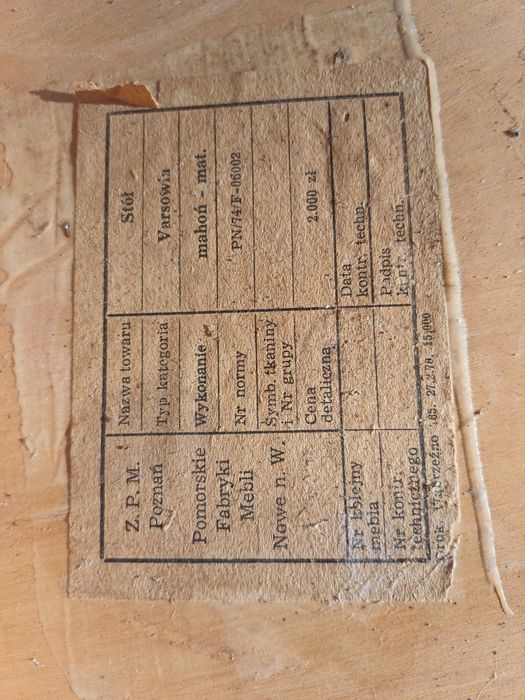 Z. P. M.
Poznań
Pomorskie
Fabryki
Mebli
Nowe n. W.
Nazwa towaru Stół
Typ kategoria Varsowia
Wykonanie mahoń - mat.
Nr normy PN/74/F-06002
Symb. tkaniny
i Nr grupy
Cena
detaliczna 2.000 zł
Nr kolejny
mebla
Data
kontr. techn.
Nr kontr.
technicznego
Podpis
kontr. techn.
Druk. Wąbrzeźno 185. 27.2.78. 15.000